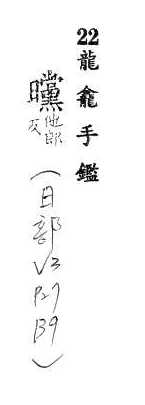 22龍龕手鑑
曭 他郎反
(日部V3P27B9)